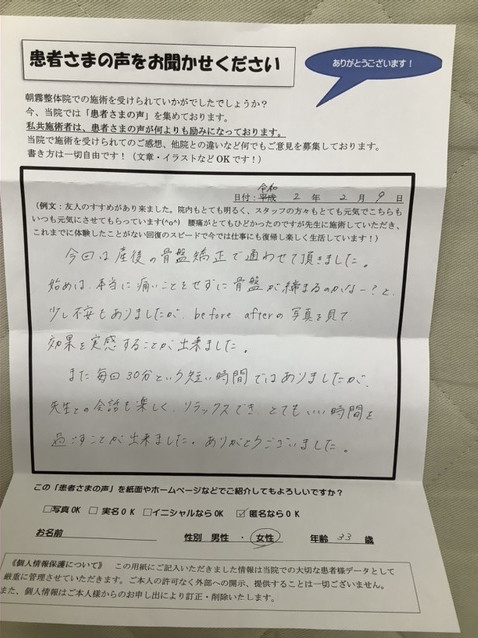 患者さまの声をお聞かせください
ありがとうございます！
朝霧整体院での施術を受けられていかがでしたでしょうか？
今、当院では「患者さまの声」を集めております。
私共施術者は、患者さまの声が何よりも励みになっております。
当院で施術を受けられてのご感想、他院との違いなど何でもご意見を募集しております。
書き方は一切自由です！（文章・イラストなどOKです！）
令和
日付：平成 2 年 2 月 9 日
（例文：友人のすすめがあり来ました。院内もとても明るく、スタッフの方々もとても元気でこちらも
いつも元気にさせてもらっています(^o^) 腰痛がとてもひどかったのですが先生に施術していただき、
これまでに体験したことがない回復のスピードで今では仕事にも復帰し楽しく生活しています！）
今回は産後の骨盤矯正で通わせて頂きました。
始めは、本当に痛いことをせずに骨盤が締まるのかなー？と、
少し不安もありましたが、before afterの写真を見て
効果を実感することが出来ました。
また毎回30分という短い時間ではありましたが、
先生との会話も楽しく、リラックスでき とてもいい時間を
過ごすことが出来ました。ありがとうございました。
この「患者さまの声」を紙面やホームページなどでご紹介してもよろしいですか？
□写真OK □ 実名OK □イニシャルならOK ☑匿名ならOK
お名前 性別 男性 ・ 女性 年齢 33 歳
《個人情報保護について》 この用紙にご記入いただきました情報は当院での大切な患者様データとして
厳重に管理させていただきます。ご本人の許可なく外部への開示、提供することは一切ございません。
また、個人情報はご本人様からのお申し出により訂正・削除いたします。